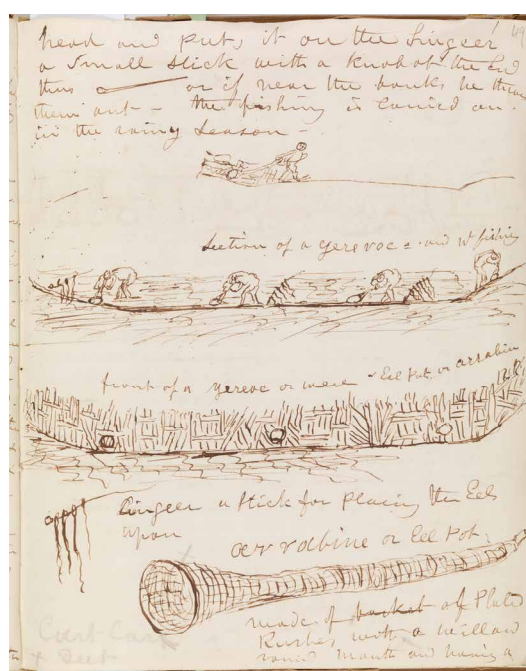 head and puts it on the lingeer
a small stick with a knob at the End
thus or if near the banks he throws
them out - the fishing is carried on
in the rainy season -
Section of a yereroc = and Wr fishing
front of a yeroc or weir = Eel Pot. or arrabine
lingeer a stick for placing the Eels
upon
arrabine or Eel Pot.
made of basket of Plated
Rushes with a willow
round mouth and having a